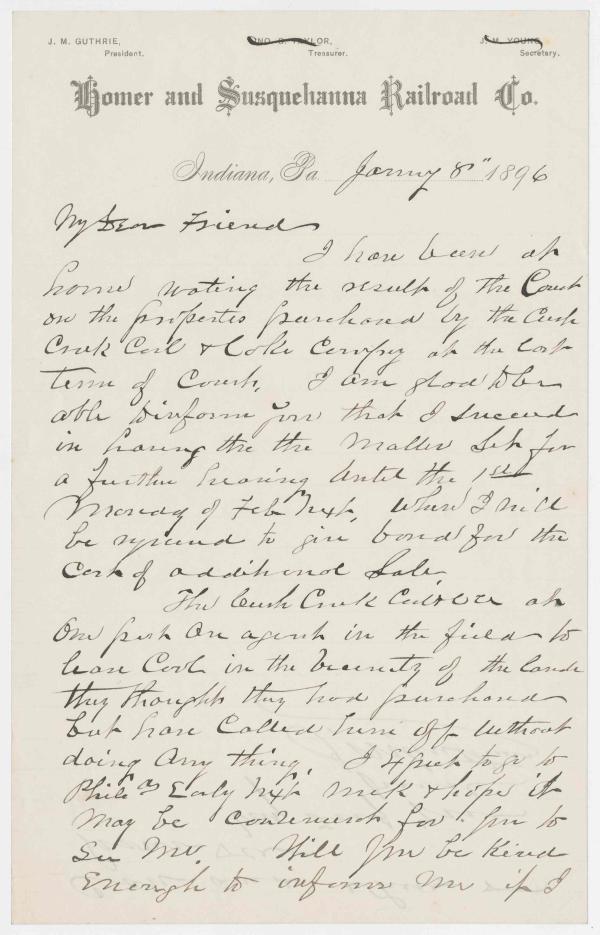 J. M. GUTHRIE,
President.
JNO. S. TAYLOR,
Treasurer.
J. M. YOUNG,
Secretary.
Homer and Susquehanna Railroad Co.
Indiana, Pa Janny 8" 1896
My Dear Friend
I have been at
home wating the result of the Court
on the properties purchased by the Cush
Creek Coal & Coke Compy at the last
term of Court. I am glad to be
able to inform you that I succeed
in having the the matter set for
a further hearing until the 1st
Monday of Feb next, when I will
be required to give bond for the
cost of additional Sale
The Cush Creek Coal & Co at
One put an agent in the field to
lease Coal in the vicinity of the lands
they thought they had purchased
but have Called him off without
doing any thing. I expect to go to
Phila Early next week & hope it
may be convenient for you to
See me. Will you be Kind
Enough to inform me if I